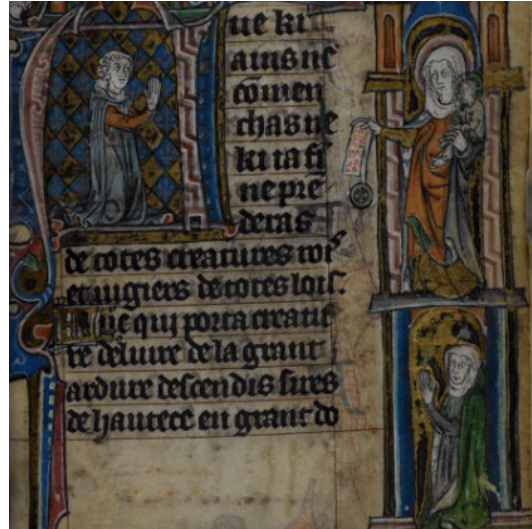 Aue ki
ains nē
cōmen
chas ne
ki ia fī
ne prē
deras
de totes creatures rois
et iugiers de totes lois.
Aue qui porta creatu
re deliure de la grant
ardure descendis sires
de hautece en grant do